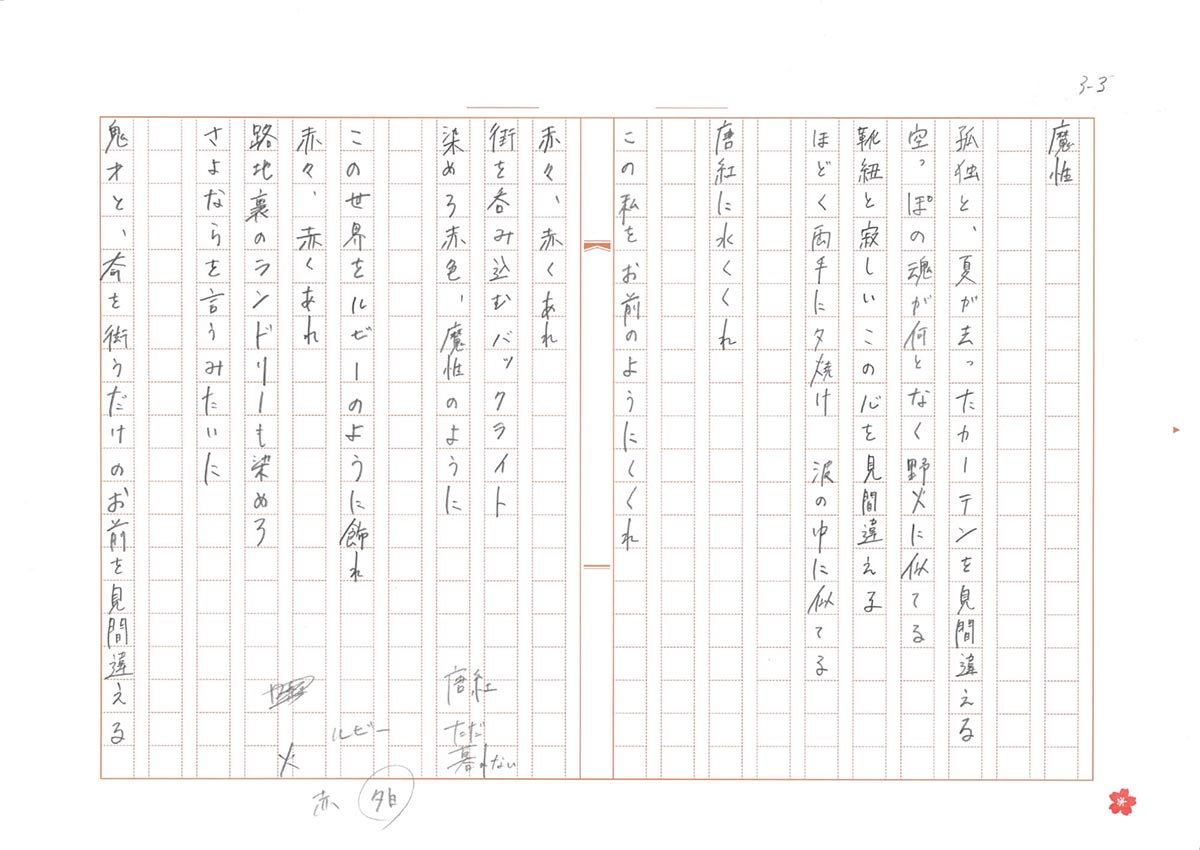 3-3
魔性
孤独と、夏が去ったカーテンを見間違える
空っぽの魂が何となく野火に似てる
靴紐と寂しいこの心を見間違える
ほどく両手に夕焼け　波の中に似てる
唐紅に水くくれ
この私をお前のようにくくれ
赤々、赤くあれ
街を呑み込むバックライト
染めろ赤色、魔性のように
このせ界をルビーのように飾れ
赤々、赤くあれ
路地裏のランドリーも染めろ
さよならを言うみたいに
鬼才と、奇を衒うだけのお前を見間違える
唐紅
ただ
暮れない
ルビー
火
赤
夕日